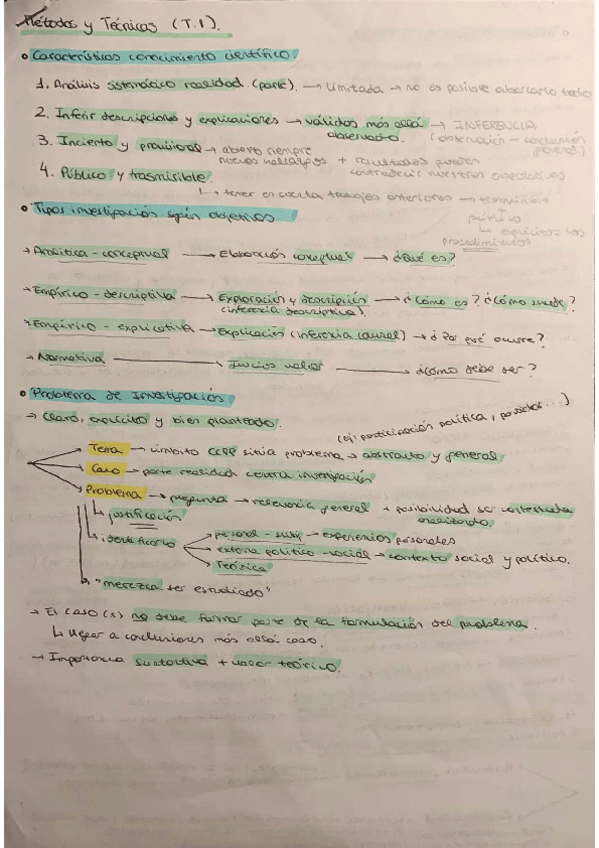 Métodos y Técnicas (T.1).
• Características conocimiento científico
1. Análisis sistemático realidad (parte). → limitada → no es posible abarcarlo todo
2. Inferir descripciones y explicaciones → válidos más allá → INFERENCIA
observado. (observación → conclusión general)
3. Incierto y provisional → abierto siempre
nuevos hallazgos + resultados pueden
contradecir nuestras expectativas
4. Público y trasmisible
↳ tener en cuenta trabajos anteriores → trasmisible
público
↳ explícitos los
procedimientos
• Tipos investigación según objetivos
→ Analítica - conceptual → Elaboración conceptual → ¿Qué es?
→ Empírico - descriptiva → Exploración y descripción → ¿Cómo es? ¿Cómo sucede?
(inferencia descriptiva).
→ Empírico - explicativa → Explicación (inferencia causal) → ¿Por qué ocurre?
→ Normativa → Juicios valor → ¿Cómo debe ser?
• Problema de Investigación
→ Claro, explícito y bien planteado. (ej: participación política, partidos...)
→ Tema → ámbito CCPP sitúa problema → abstracto y general
→ Caso → parte realidad centra investigación
→ Problema → pregunta → relevancia general + posibilidad ser contestada
analizando
↳ justificación
↳ identificarlo → personal - subj → experiencias personales
→ externa político - social → contexto social y político.
→ Teórica
→ "merezca ser estudiado"
→ El caso (s) no debe formar parte de la formulación del problema.
↳ llegar a conclusiones más allá caso.
→ Importancia sustantiva + valor teórico.